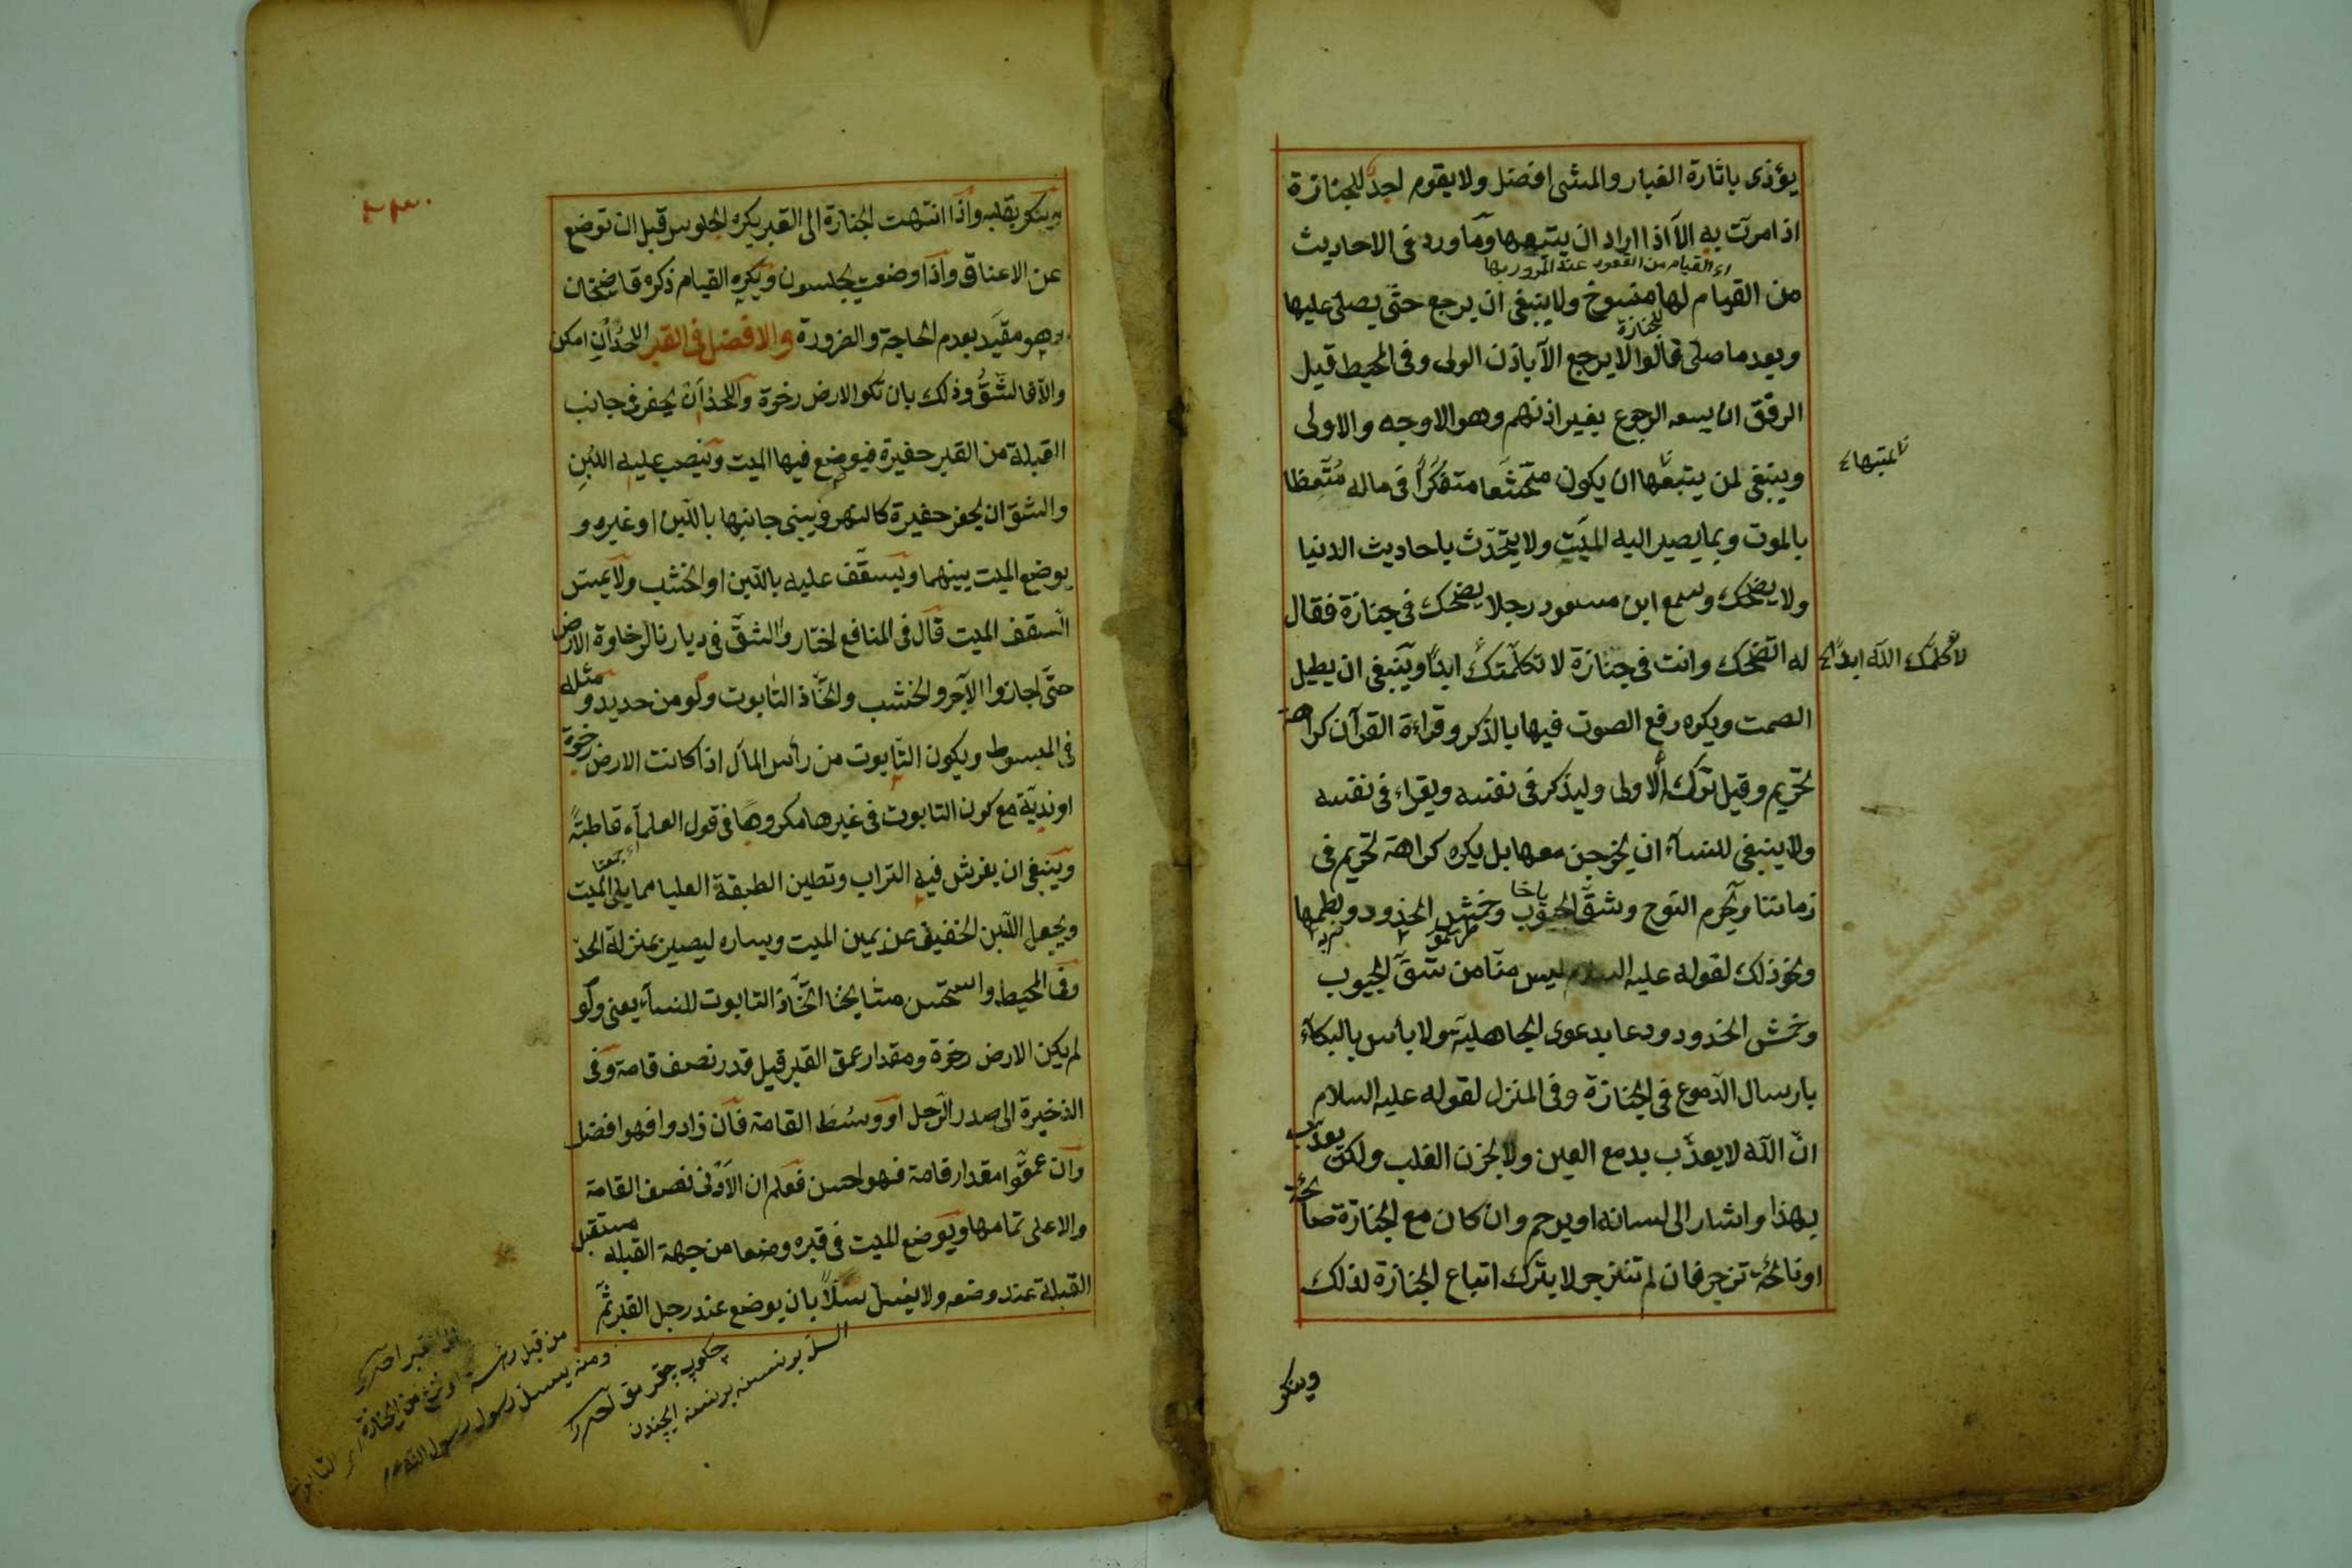 يؤذى باثارة الغبار والمشى افضل ولا يقوم احد للجنازة
اذا مرت به الا اذا اراد ان يتبعها وما ورد فى الاحاديث
اى القيام من القعود عند المرور بها
من القيام لها منسوخ ولا ينبغى ان يرجع حتى يصلى عليها
للجنازة
وبعد ما صلى قالوا لا يرجع الا باذن الولى وفى المحيط قيل
الرفق ان يسعه الرجوع بغير اذنهم وهو الاوجه والاولى
وينبغى لمن يتبعها ان يكون متخشعا متفكرا فى ماله متعظا
بالموت وبما يصير اليه الميت ولا يتحدث باحاديث الدنيا
ولا يضحك وسمع ابن مسعود رجلا يضحك فى جنازة فقال
له اتضحك وانت فى جنازة لا تكلمتك ابدا وينبغى ان يطيل
لا كلمك الله ابدا
الصمت ويكره رفع الصوت فيها بالذكر وقراءة القرآن كراهة
تحريم وقيل ترك الاولى وليذكر فى نفسه ويقراء فى نفسه
ولا ينبغى للنساء ان يخرجن معها بل يكره كراهة تحريم فى
زماننا ويحرم النوح وشق الجيوب وخمش الخدود ولطمها
ونحو ذلك لقوله عليه السلام ليس منا من شق الجيوب
وخمش الخدود ودعا بدعوى الجاهلية ولا بأس بالبكاء
بارسال الدموع فى الجنازة وفى المنزل لقوله عليه السلام
ان الله لا يعذب بدمع العين ولا بحزن القلب ولكن يعذب
بهذا واشار الى لسانه او يرحم وان كان مع الجنازة صائحة
او نائحة تزجر فان لم تنزجر لا يترك اتباع الجنازة لذلك
وينكر
وينكر بقلبه واذا انتهت الجنازة الى القبر يكره الجلوس قبل ان توضع
عن الاعناق واذا وضعت يجلسون ويكره القيام ذكره قاضيخان
وهو مقيد بعدم الحاجة والضرورة والافضل فى القبر اللحد ان امكن
والا فالشق وذلك بان تكون الارض رخوة واللحد ان يحفر فى جانب
القبلة من القبر حفيرة فيوضع فيها الميت وينصب عليه اللبن
والشق ان يحفر حفيرة كالنهر ويبنى جانبها باللبن او غيره و
يوضع الميت بينهما ويسقف عليه باللبن او الخشب ولا يمس
السقف الميت قال فى المنافع اختاروا الشق فى ديارنا لرخاوة الارض
حتى اجازوا الآجر والخشب واتخاذ التابوت ولو من حديد ومثله
فى المبسوط ويكون التابوت من رأس المال اذا كانت الارض رخوة
او ندية مع كون التابوت فى غيرها مكروها فى قول العلماء قاطبة
وينبغى ان يفرش فيه التراب وتطين الطبقة العليا مما يلى الميت
ويجعل اللبن الخفيف عن يمين الميت ويساره ليصير بمنزلة اللحد
وفى المحيط واستحسن مشايخنا اتخاذ التابوت للنساء يعنى ولو
لم يكن الارض رخوة ومقدار عمق القبر قيل قدر نصف قامة وفى
الذخيرة الى صدر الرجل او وسط القامة فان زادوا فهو افضل
وان عمقوا مقدار قامة فهو احسن فعلم ان الادنى نصف القامة
والاعلى تمامها ويوضع الميت فى قبره وضعا من جهة القبلة مستقبل
القبلة عند وضعه ولا يسل سلا بان يوضع عند رجل القبر ثم